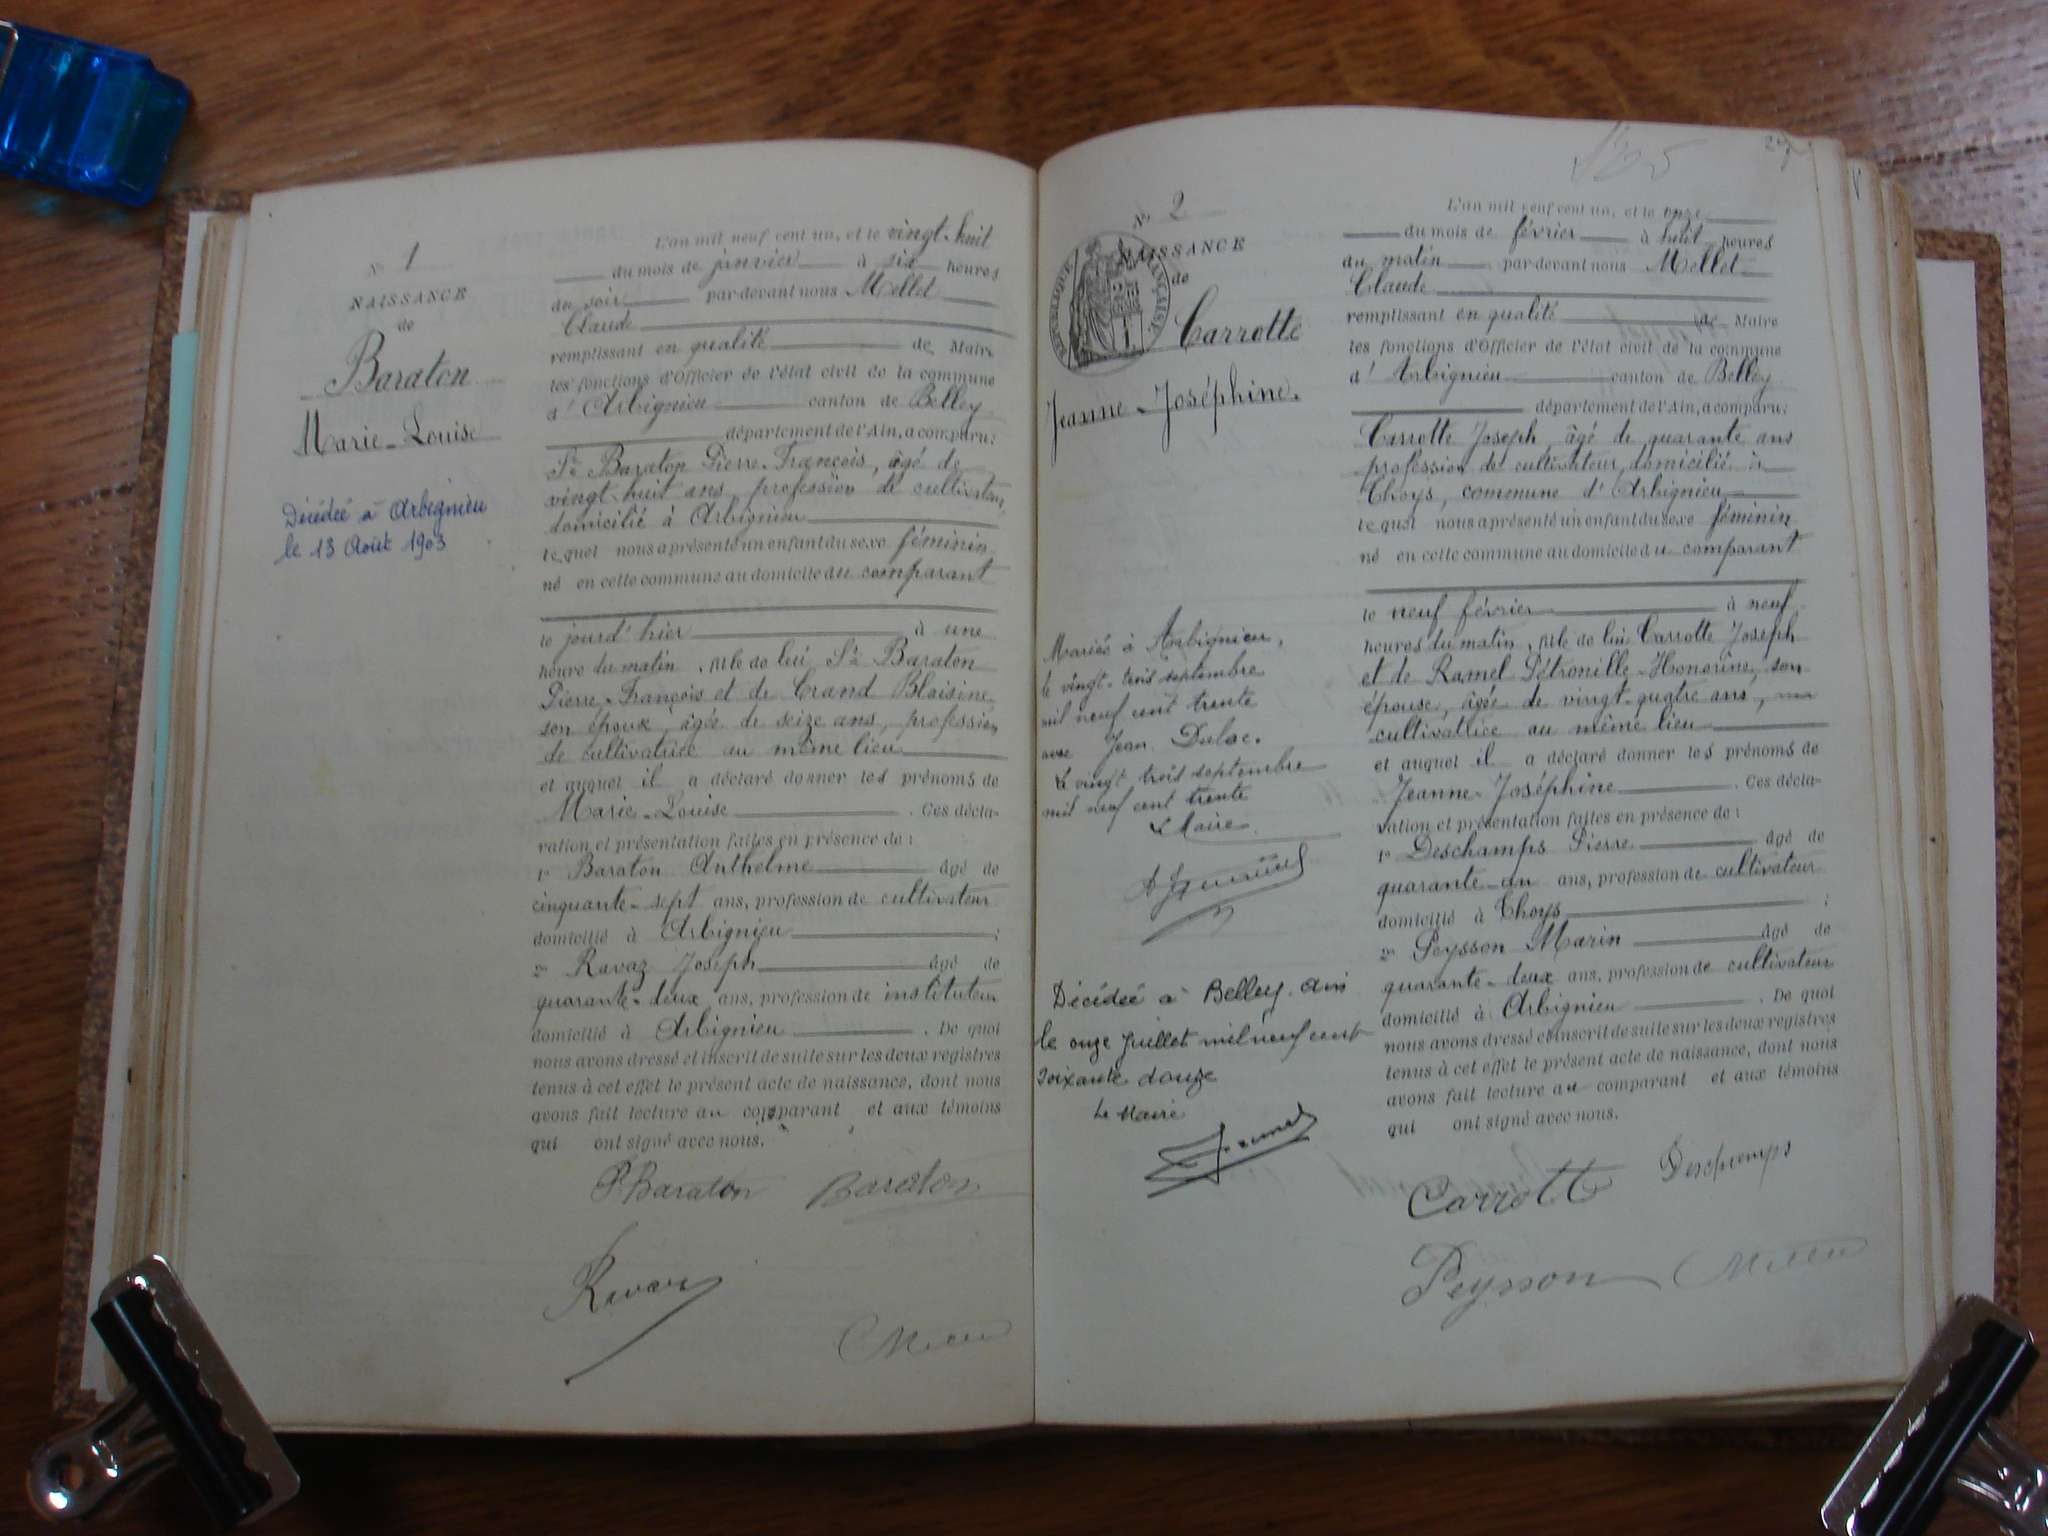 N° 1
NAISSANCE
de
Baraton
Marie-Louise
Décédée à Arbignieu
le 13 Août 1903
L'an mil neuf cent un, et le vingt-huit
du mois de janvier à six heures
du soir par-devant nous Mellet
Claude
remplissant en qualité de Maire
les fonctions d'Officier de l'état civil de la commune
d'Arbignieu canton de Belley
département de l'Ain, a comparu:
Sr Baraton Pierre-François, âgé de
vingt-huit ans, profession de cultivateur,
domicilié à Arbignieu
lequel nous a présenté un enfant du sexe féminin
né en cette commune au domicile du comparant
le jourd'hier à une
heure du matin, fille de lui Sr Baraton
Pierre-François et de Grand Blaisine
son époux, âgée de seize ans, profession
de cultivatrice au même lieu
et auquel il a déclaré donner les prénoms de
Marie-Louise. Ces décla-
ration et présentation faites en présence de:
1° Baraton Anthelme âgé de
cinquante-sept ans, profession de cultivateur
domicilié à Arbignieu;
2° Ravaz Joseph âgé de
quarante-deux ans, profession de instituteur
domicilié à Arbignieu. De quoi
nous avons dressé et inscrit de suite sur les deux registres
tenus à cet effet le présent acte de naissance, dont nous
avons fait lecture au comparant et aux témoins
qui ont signé avec nous.
P. Baraton Baraton
Ravaz
27
N° 2
NAISSANCE
de
RÉPUBLIQUE FRANÇAISE
Carrotte
Jeanne-Joséphine.
Mariée à Arbignieu,
le vingt-trois septembre
mil neuf cent trente
avec Jean Dulac.
Le vingt trois septembre
mil neuf cent trente
Le Maire
Décédée à Belley. Ain
le onze Juillet mil neuf cent
soixante douze
Le Maire
L'an mil neuf cent un, et le onze
du mois de février à huit heures
du matin par-devant nous Mellet
Claude
remplissant en qualité de Maire
les fonctions d'Officier de l'état civil de la commune
d'Arbignieu canton de Belley
département de l'Ain, a comparu:
Carrotte Joseph, âgé de quarante ans
profession de cultivateur, domicilié à
Thoys, commune d'Arbignieu
lequel nous a présenté un enfant du sexe féminin
né en cette commune au domicile du comparant
le neuf février à neuf
heures du matin, fille de lui Carrotte Joseph
et de Ramel Pétronille-Honorine, son
épouse, âgée de vingt-quatre ans,
cultivatrice au même lieu
et auquel il a déclaré donner les prénoms de
Jeanne-Joséphine. Ces décla-
ration et présentation faites en présence de:
1° Deschamps Pierre âgé de
quarante-un ans, profession de cultivateur
domicilié à Thoys;
2° Peysson Marin âgé de
quarante-deux ans, profession de cultivateur
domicilié à Arbignieu. De quoi
nous avons dressé et inscrit de suite sur les deux registres
tenus à cet effet le présent acte de naissance, dont nous
avons fait lecture au comparant et aux témoins
qui ont signé avec nous.
Carrotte Deschamps
Peysson